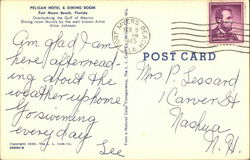 PELICAN HOTEL & DINING ROOM
Fort Myers Beach, Florida
Overlooking the Gulf of Mexico
Dining room Murals by the well known Artist
Alice Johnson
FORT MYERS BEACH
FLA.
POST CARD
Am glad I am
here, after read-
ing about the
weather up home.
Go swimming
every day
Lee
Mrs P. Lessard
1 Carver St
Nashua
N. H.